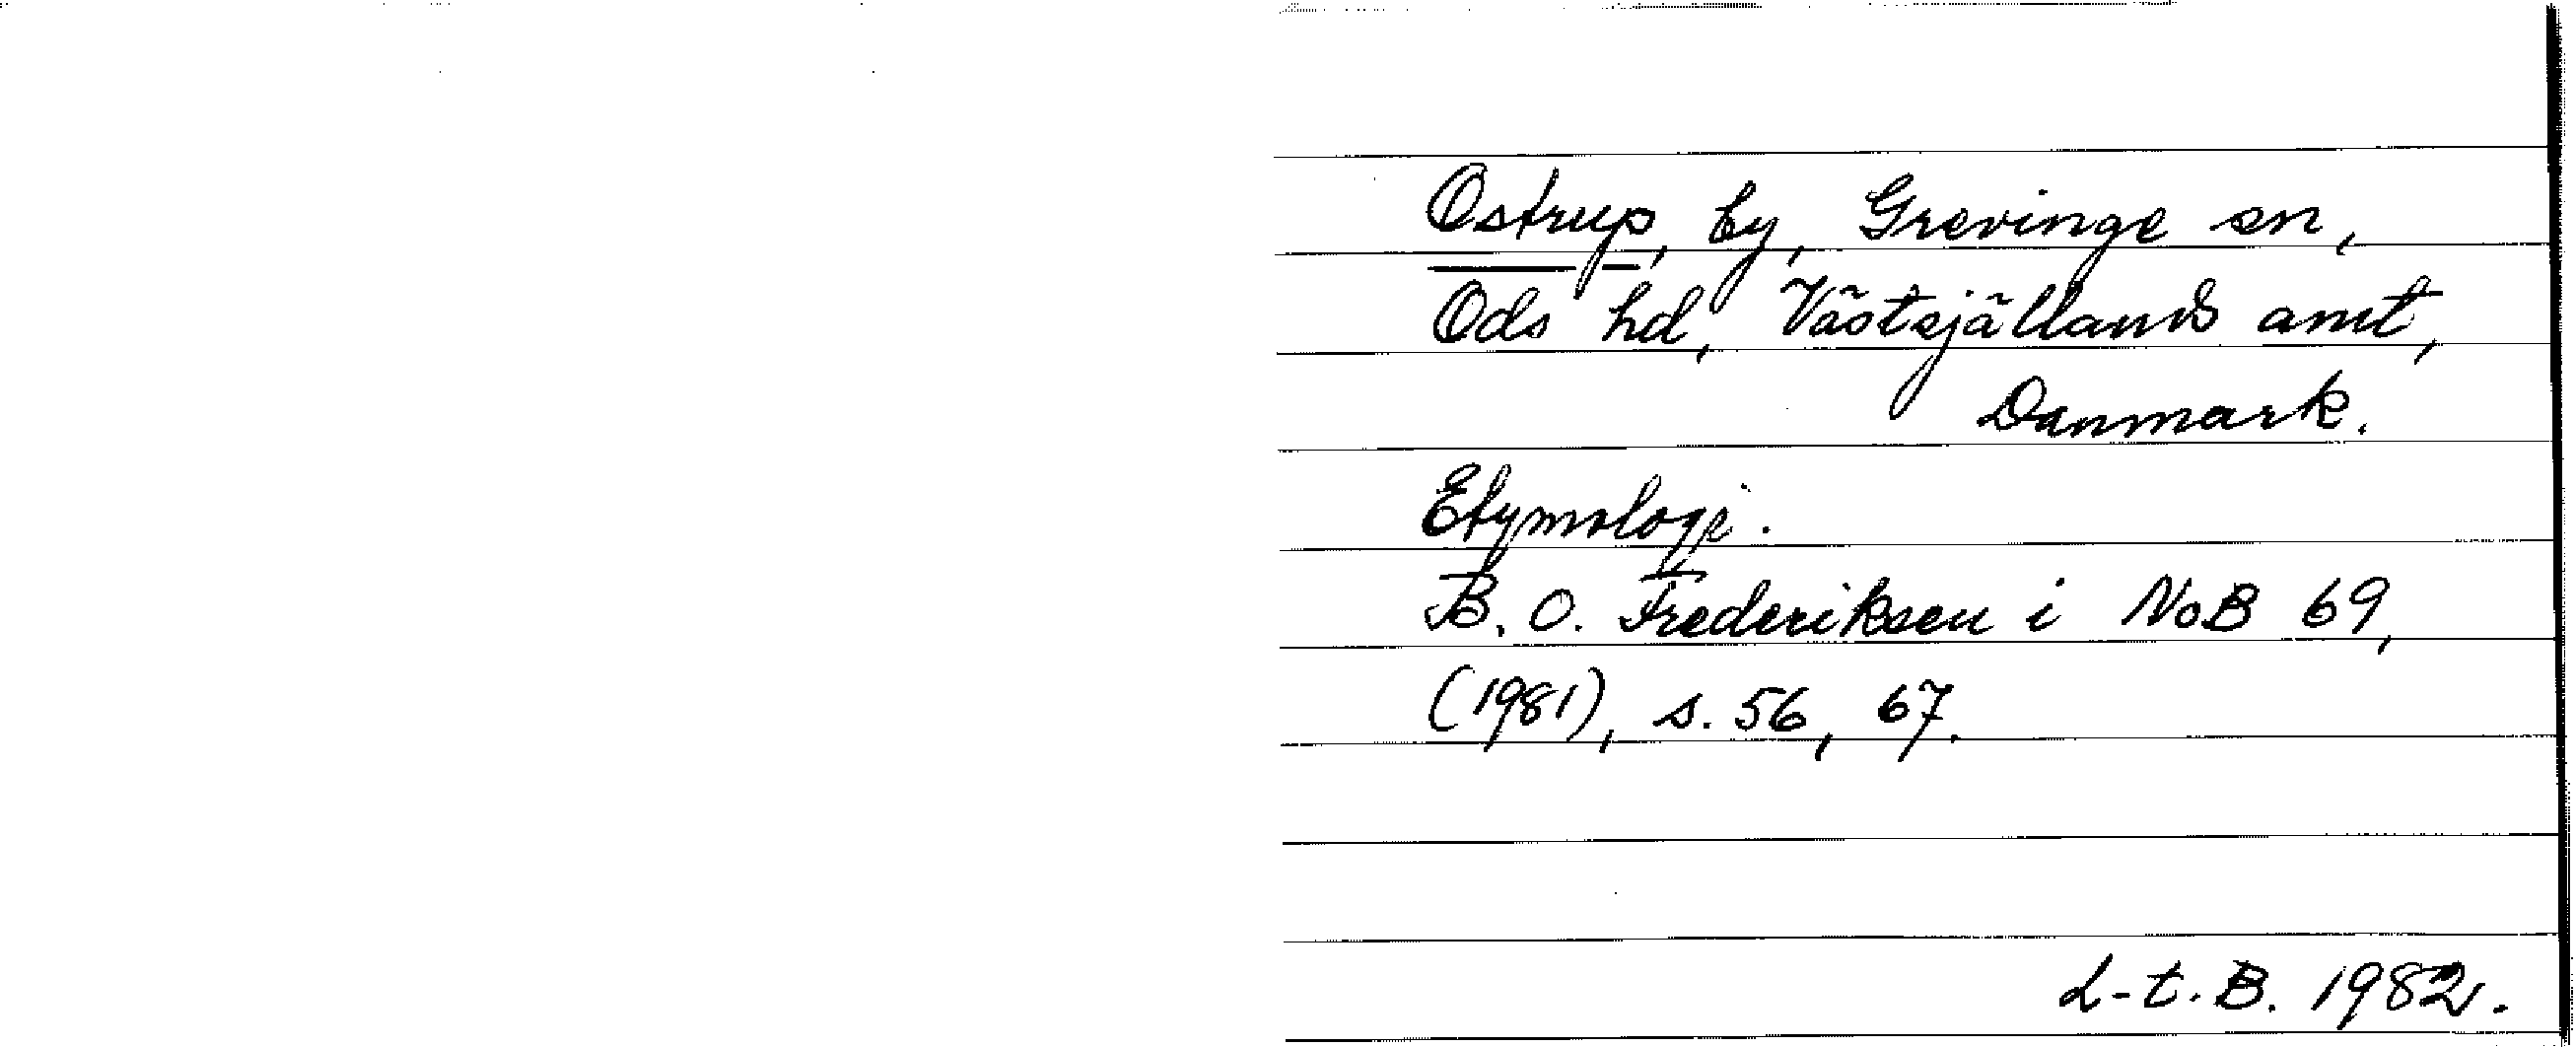 Ostrup, by, Grevinge sn,
Ods hd, Västsjällands amt,
Danmark.
Etymologi.
B. O. Frederiksen i NoB 69,
(1981), s. 56, 67.
L-t. B. 1982.